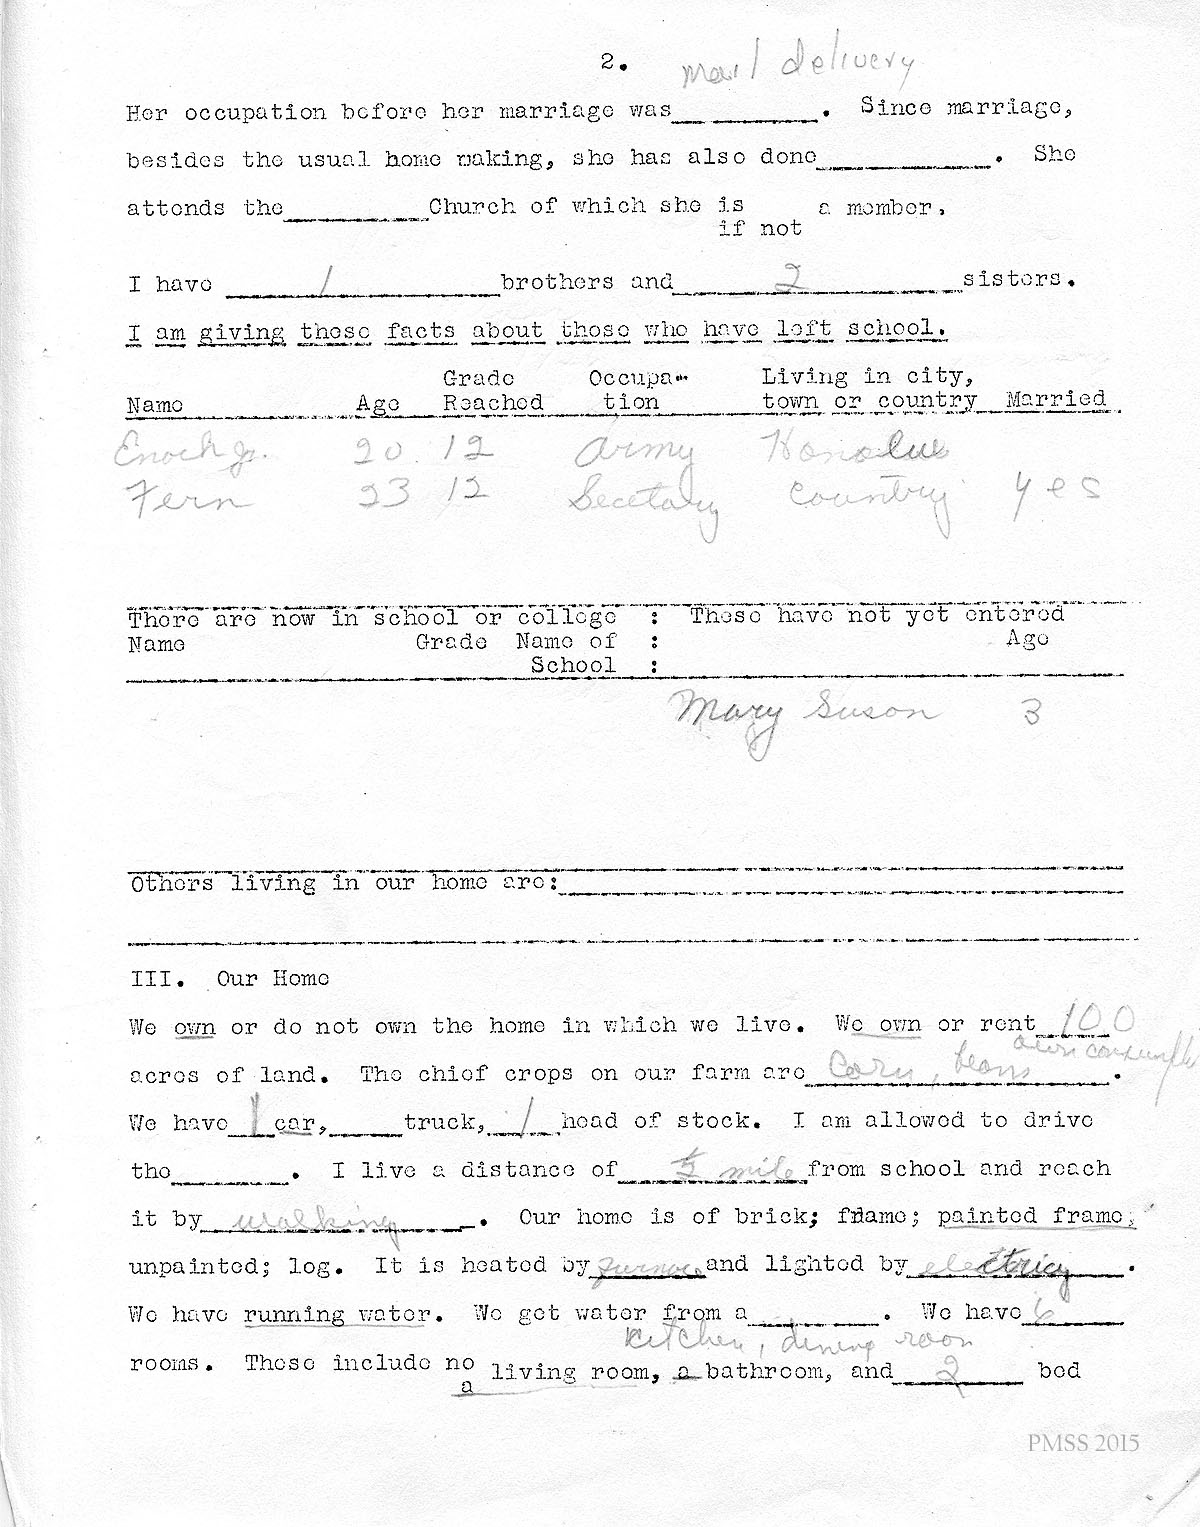 2. mail delivery
Her occupation before her marriage was__ ________. Since marriage,
besides the usual home making, she has also done____________. She
attends the__________Church of which she is a member.
if not
I have 1 brothers and 2 sisters.
I am giving these facts about those who have left school.
Grade Occupa- Living in city,
Name Age Reached tion town or country Married
Enoch Jr. 20 12 Army Honolulu
Fern 23 12 Secetary Country yes
There are now in school or college : These have not yet entered
Name Grade Name of : Age
School :
Mary Suson 3
Others living in our home are:
III. Our Home
We own or do not own the home in which we live. We own or rent 100
own
acres of land. The chief crops on our farm are Corn, beans.
We have 1 car,_____truck, 1 head of stock. I am allowed to drive
the________. I live a distance of ½ mile from school and reach
it by walking. Our home is of brick; frame; painted frame;
unpainted; log. It is heated by furnace and lighted by electricy.
We have running water. We get water from a_________. We have 6
kitchen, dining room
rooms. These include no living room, a bathroom, and 2 bed
a
PMSS 2015